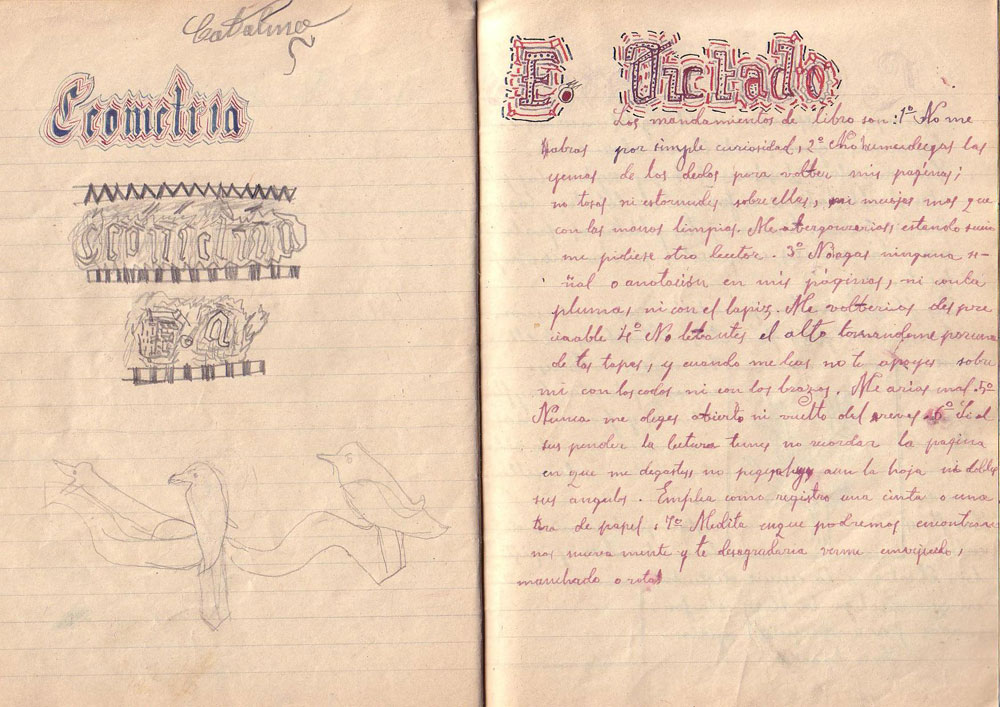 Catalina
Geometria
Geometria
E. a
E. Dictado
Los mandamientos de libro son: 1º No me
habras por simple curiosidad, 2º No humedezgas las
yemas de los dedos para volber mis paginas;
no tosas ni estornudes sobre ellas, ni mas que
con las manos limpias. Me abergonzarias, estando sucio
me pidiese otro lector. 3º No agas ninguna se-
ñal o anotasión en mis páginas, ni con la
pluma, ni con el lapiz. Me volberias despre
ciable 4º No lebantes el alto tomandome por una
de las tapas, y cuando me leas no te apoyes sobre
mi con los codos ni con los brazos. Me arias mal. 5º
Nunca me deges abierto ni vuelto del reves. 6º Si al
suspender la lectura temes no recordar la pagina
en que me degastes no aun la hoja ni dobles
sus angulos. Emplea como registro una cinta o una
tira de papel. 7º Medita en que podremos encontrar
nos nueva mente y te desagradaria verme embejecido,
manchado o roto